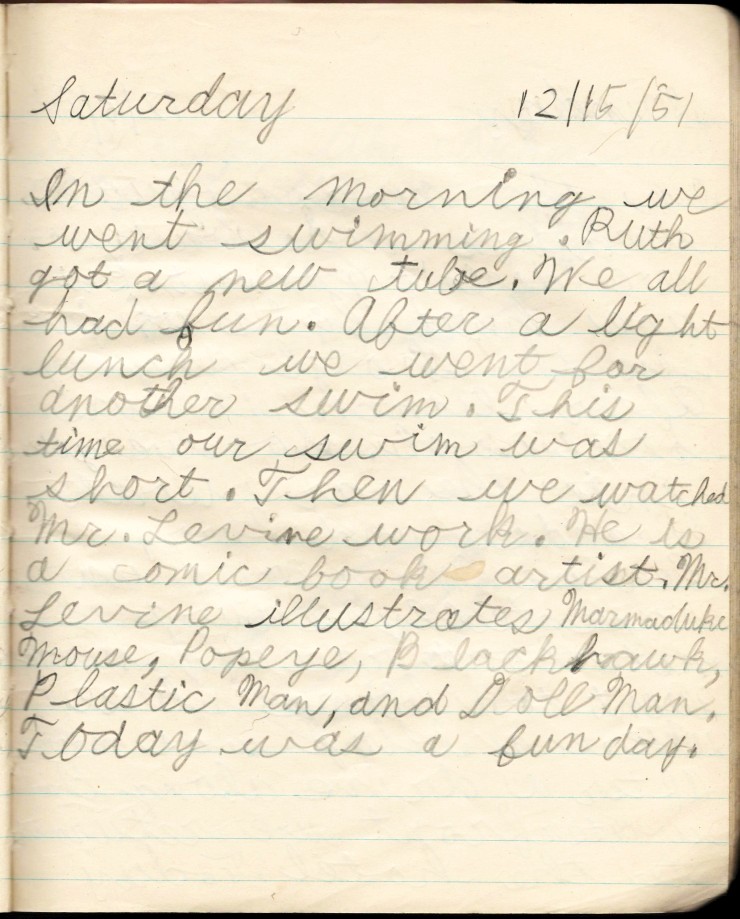 Saturday 12/15/51
In the morning we
went swimming. Ruth
got a new tube. We all
had fun. After a light
lunch we went for
another swim. This
time our swim was
short. Then we watched
Mr. Levine work. He is
a comic book artist. Mr.
Levine illustrates Marmaduke
Mouse, Popeye, Blackhawk,
Plastic Man, and Doll Man.
Today was a fun day.